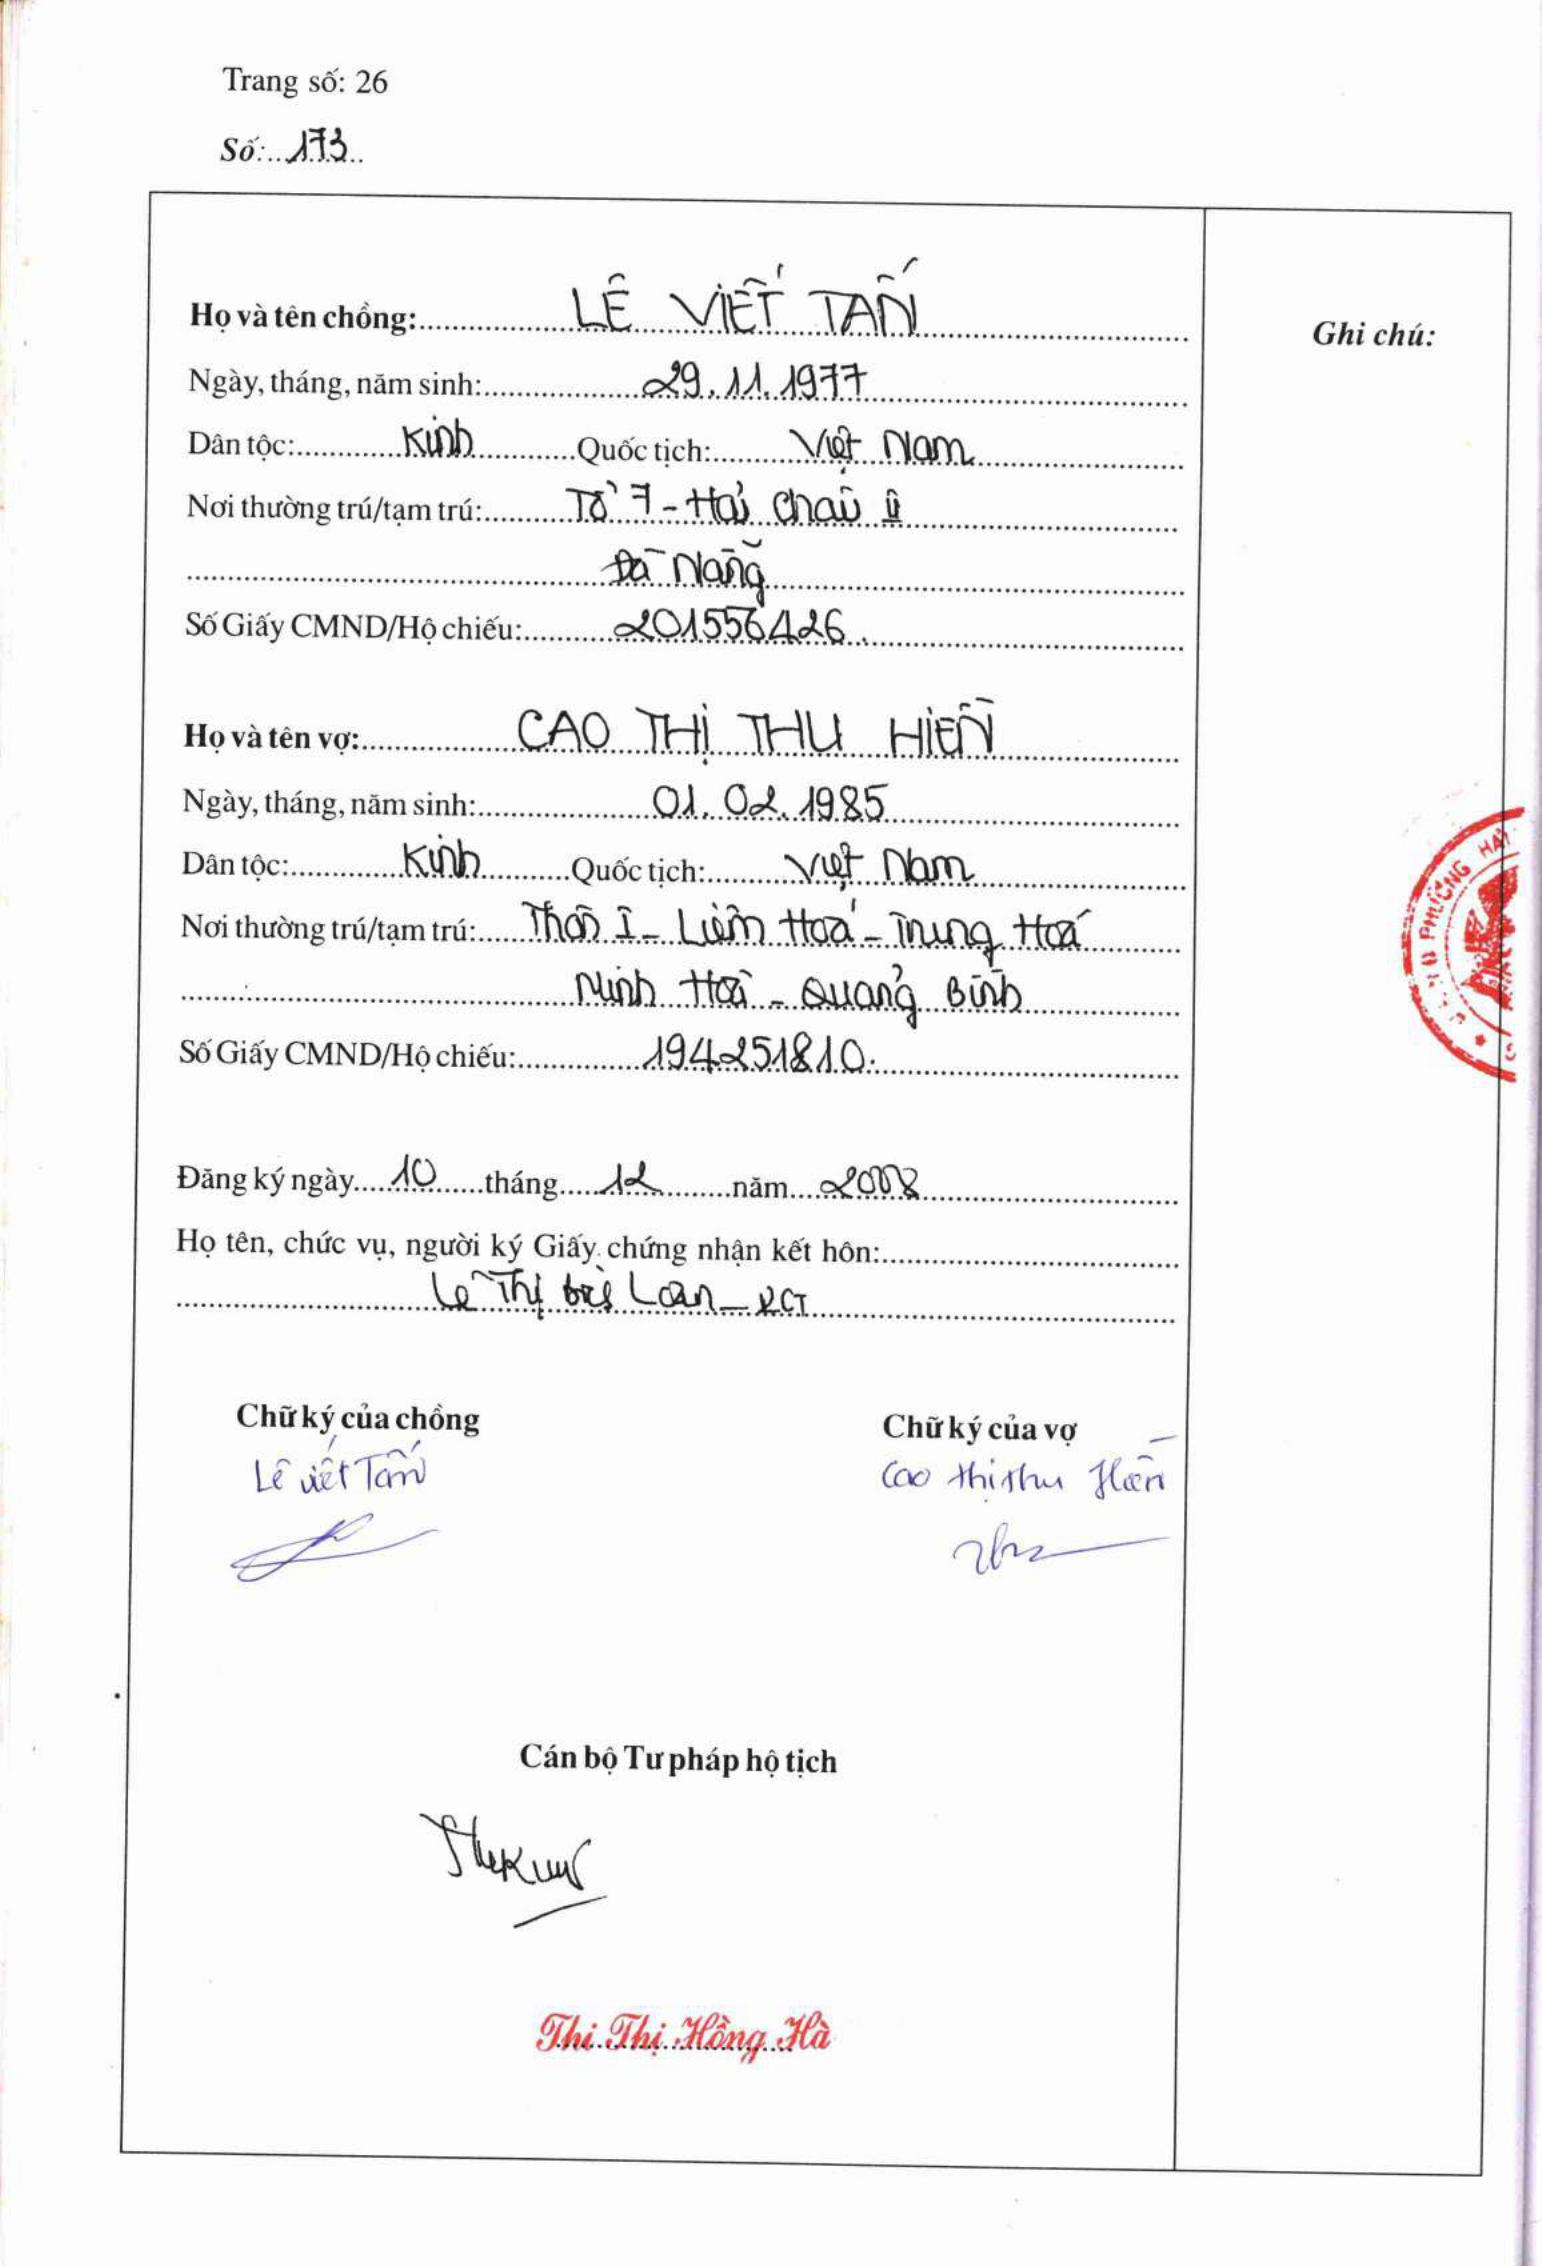 Trang số: 26
Số: 173
Họ và tên chồng: LÊ VIẾT TẤN
Ghi chú:
Ngày, tháng, năm sinh: 29.11.1977
Dân tộc: Kinh Quốc tịch: Việt Nam
Nơi thường trú/tạm trú: Tổ 7 - Hải Châu II
Đà Nẵng
Số Giấy CMND/Hộ chiếu: 201556426.
Họ và tên vợ: CAO THỊ THU HIỀN
Ngày, tháng, năm sinh: 01.02.1985
Dân tộc: Kinh Quốc tịch: Việt Nam
Nơi thường trú/tạm trú: Thôn I - Liêm Hoá - Trung Hoá
Minh Hoá - Quảng Bình
Số Giấy CMND/Hộ chiếu: 194251810.
PHƯỜNG HẢI
Đăng ký ngày 10 tháng 12 năm 2008
Họ tên, chức vụ, người ký Giấy chứng nhận kết hôn:
Lê Thị Loan - PCT
Chữ ký của chồng
Chữ ký của vợ
Lê Viết Tấn
Cao Thị Thu Hiền
Cán bộ Tư pháp hộ tịch
Thi Thị Hồng Hà